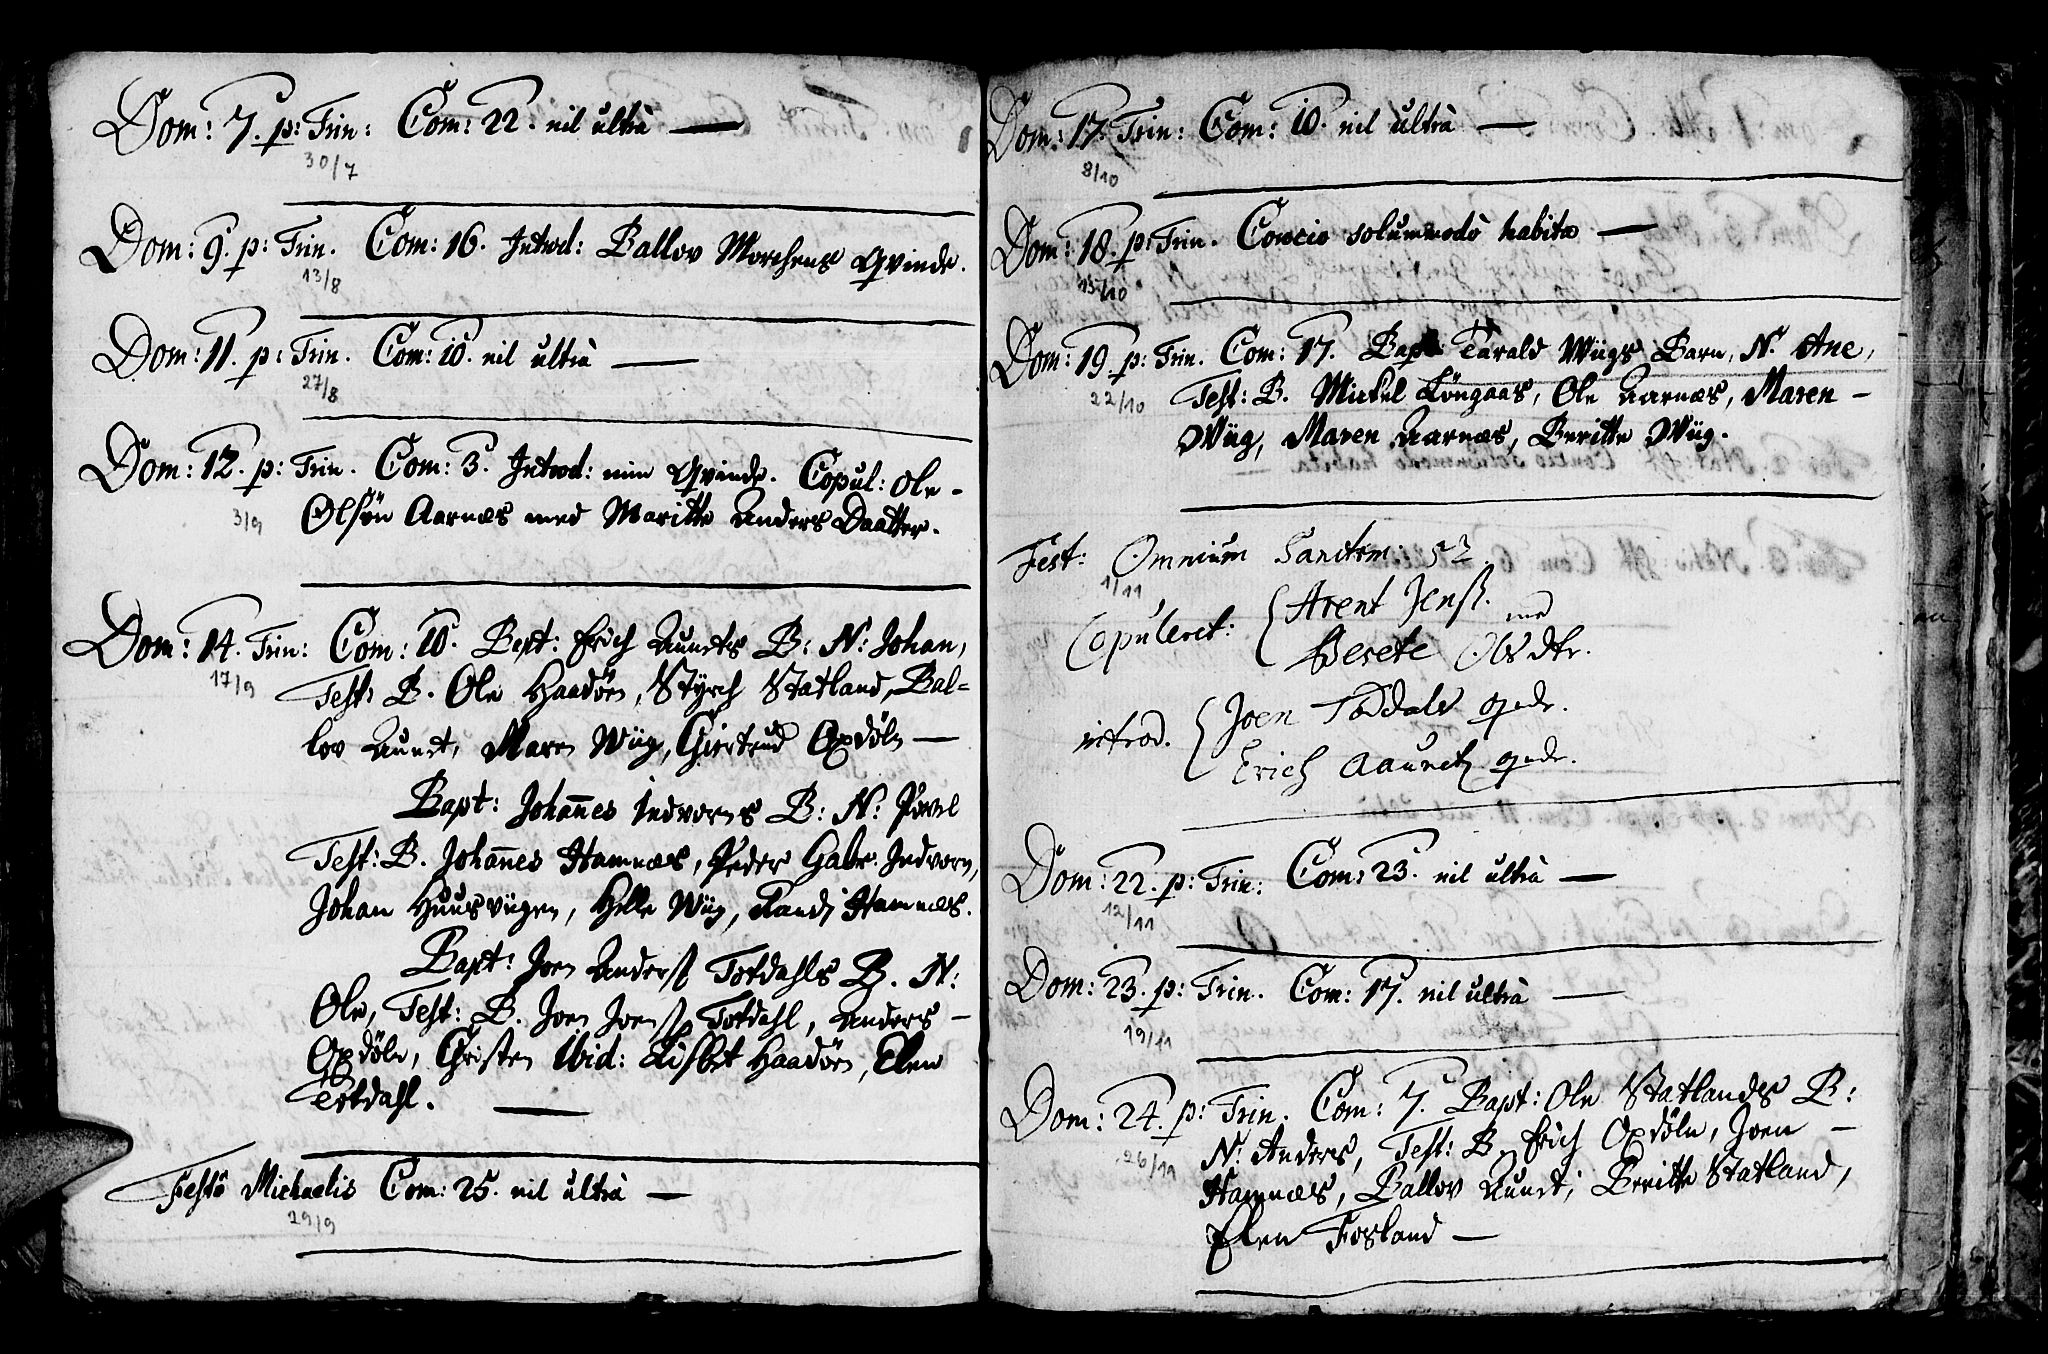 Dom: 7. p: Trin: Com: 22. nil ultrà —
30/7
Dom: 9. p: Trin. Com: 16. Introd: Ballov Morchens Qvinde.
13/8
Dom: 11. p: Trin. Com: 10. nil ultrà —
27/8
Dom: 12. p: Trin. Com: 3. Introd: min Qvinde. Copul: Ole-
3/9
Olsøn Aarnæs med Maritte Anders Daatter.
Dom: 14. Trin: Com: 10. Bapt: Erich Aunets B: N: Johan,
17/9
Test: B. Ole Haadøen, Styrch Statland, Bal=
lov Aunet, Maren Wiig, Giertrud Opdøln —
Bapt: Johan̄es Indvorns B: N: Povel
Test: B. Johan̄es Hamnæs, Peder Gabr. Indvorn,
Johan Huusviigen, Helle Wiig, Randi Hamnæs.
Bapt: Joen Anderss Totdahls B. N:
Ole, Test: B. Joen Joenss Totdahl, Anders —
Opdøln, Christen Ibid: Lisbet Haadøen, Elen
Totdahl. —
Festo Michaelis Com: 25. nil ultrà —
29/9
Dom: 17. Trin: Com: 10. nil ultrà —
8/10
Dom: 18. p: Trin. Concio solummodò habita —
15/10
Dom: 19. p: Trin. Com: 17. Bapt Tarald Wiigs Barn, N. Ane,
22/10
Test: B. Mickel Longaas, Ole Aarnæs, Maren —
Wiig, Maren Aarnæs, Beritte Wiig.
Fest: Omnium Sanctrm: 52.
1/11
Copuleret: { Arent Jenss. med
Berete Olsdtr.
introd. { Joen Toddals qvdr.
Erich Aaunetz qvdr.
Dom: 22. p: Trin: Com: 23. nil ultrà —
12/11
Dom: 23. p: Trin. Com: 17. nil ultrà —
19/11
Dom: 24. p: Trin. Com: 7. Bapt: Ole Statlandes B:
N: Anders, Test: B. Erich Opdøln, Joen —
26/11
Hamnæs, Ballov Aunet, Beritte Statland,
Elen Fosland —